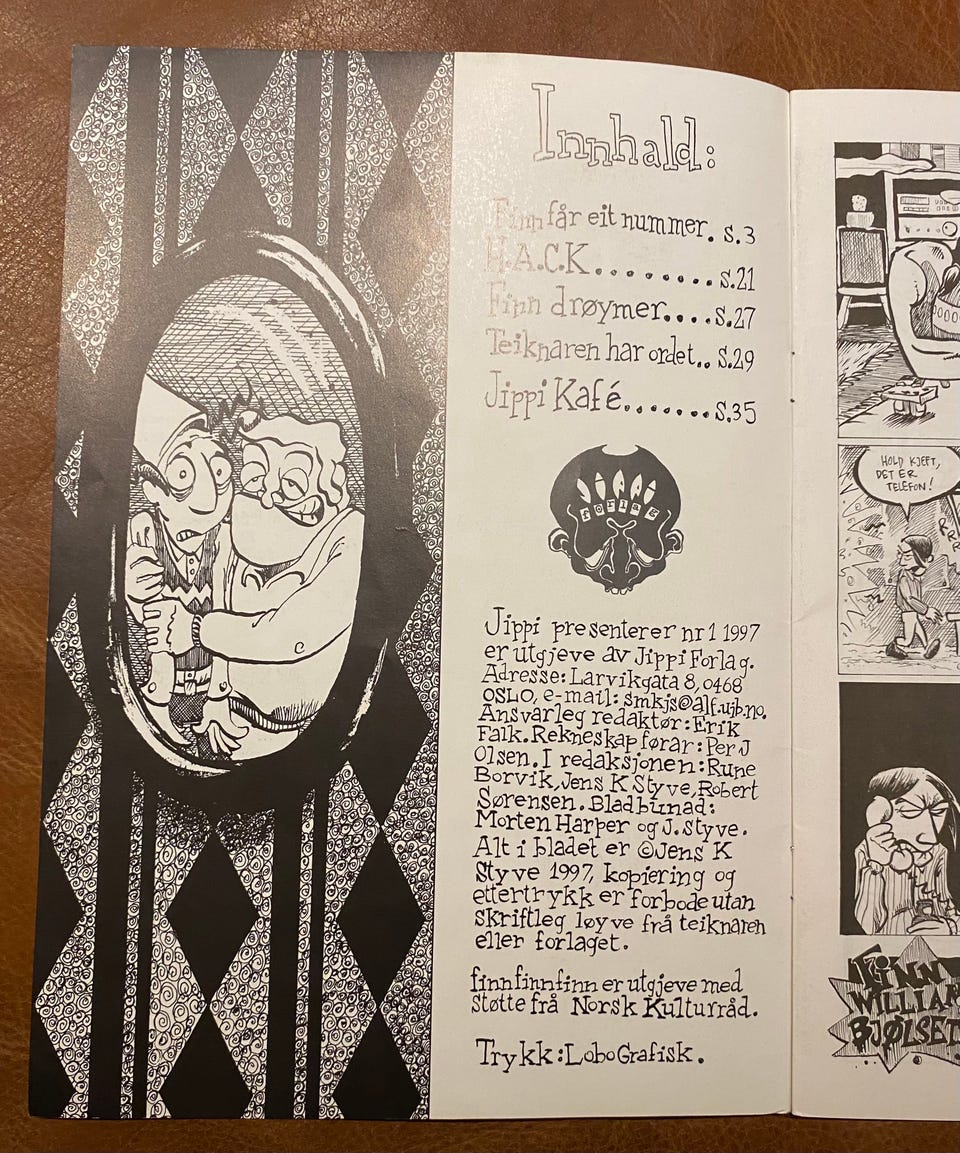 Innhald:
Finn får eit nummer. s.3
H.A.C.K......... s.21
Finn drøymer.... s.27
Teiknaren har ordet.. s.29
Jippi Kafé....... s.35
JIPPI
forlag
Jippi presenterer nr 1 1997
er utgjeve av Jippi Forlag.
Adresse: Larvikgata 8, 0468
OSLO, e-mail: smkjs@alf.uib.no.
Ansvarleg redaktør: Erik
Falk. Rekneskapførar: Per J
Olsen. I redaksjonen: Rune
Borvik, Jens K Styve, Robert
Sørensen. Bladbunad:
Morten Harper og J. Styve.
Alt i bladet er ©Jens K
Styve 1997, kopiering og
ettertrykk er forbode utan
skriftleg løyve frå teiknaren
eller forlaget.
finnfinnfinn er utgjeve med
støtte frå Norsk Kulturråd.
Trykk: Lobo Grafisk.
HOLD KJEFT,
DET ER
TELEFON!
FINN
WILLIAM
BJØLSET